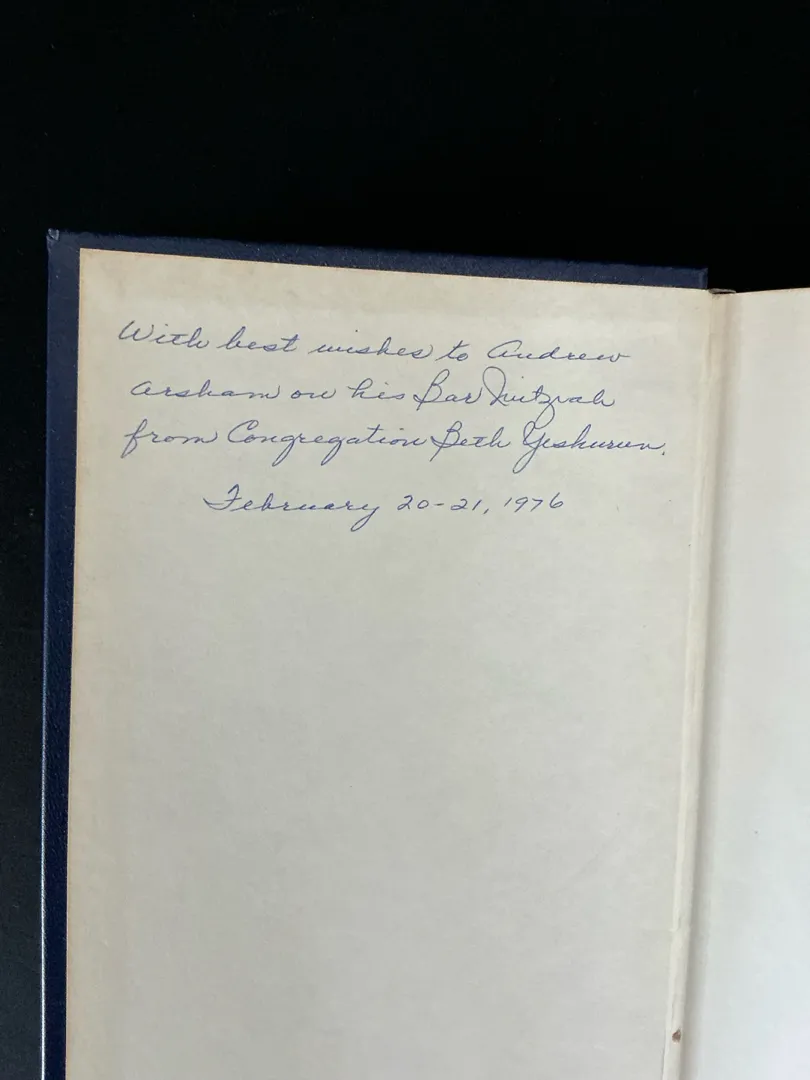 With best wishes to Andrew
Arsham on his Bar Mitzvah
from Congregation Beth Yeshurun.
February 20-21, 1976